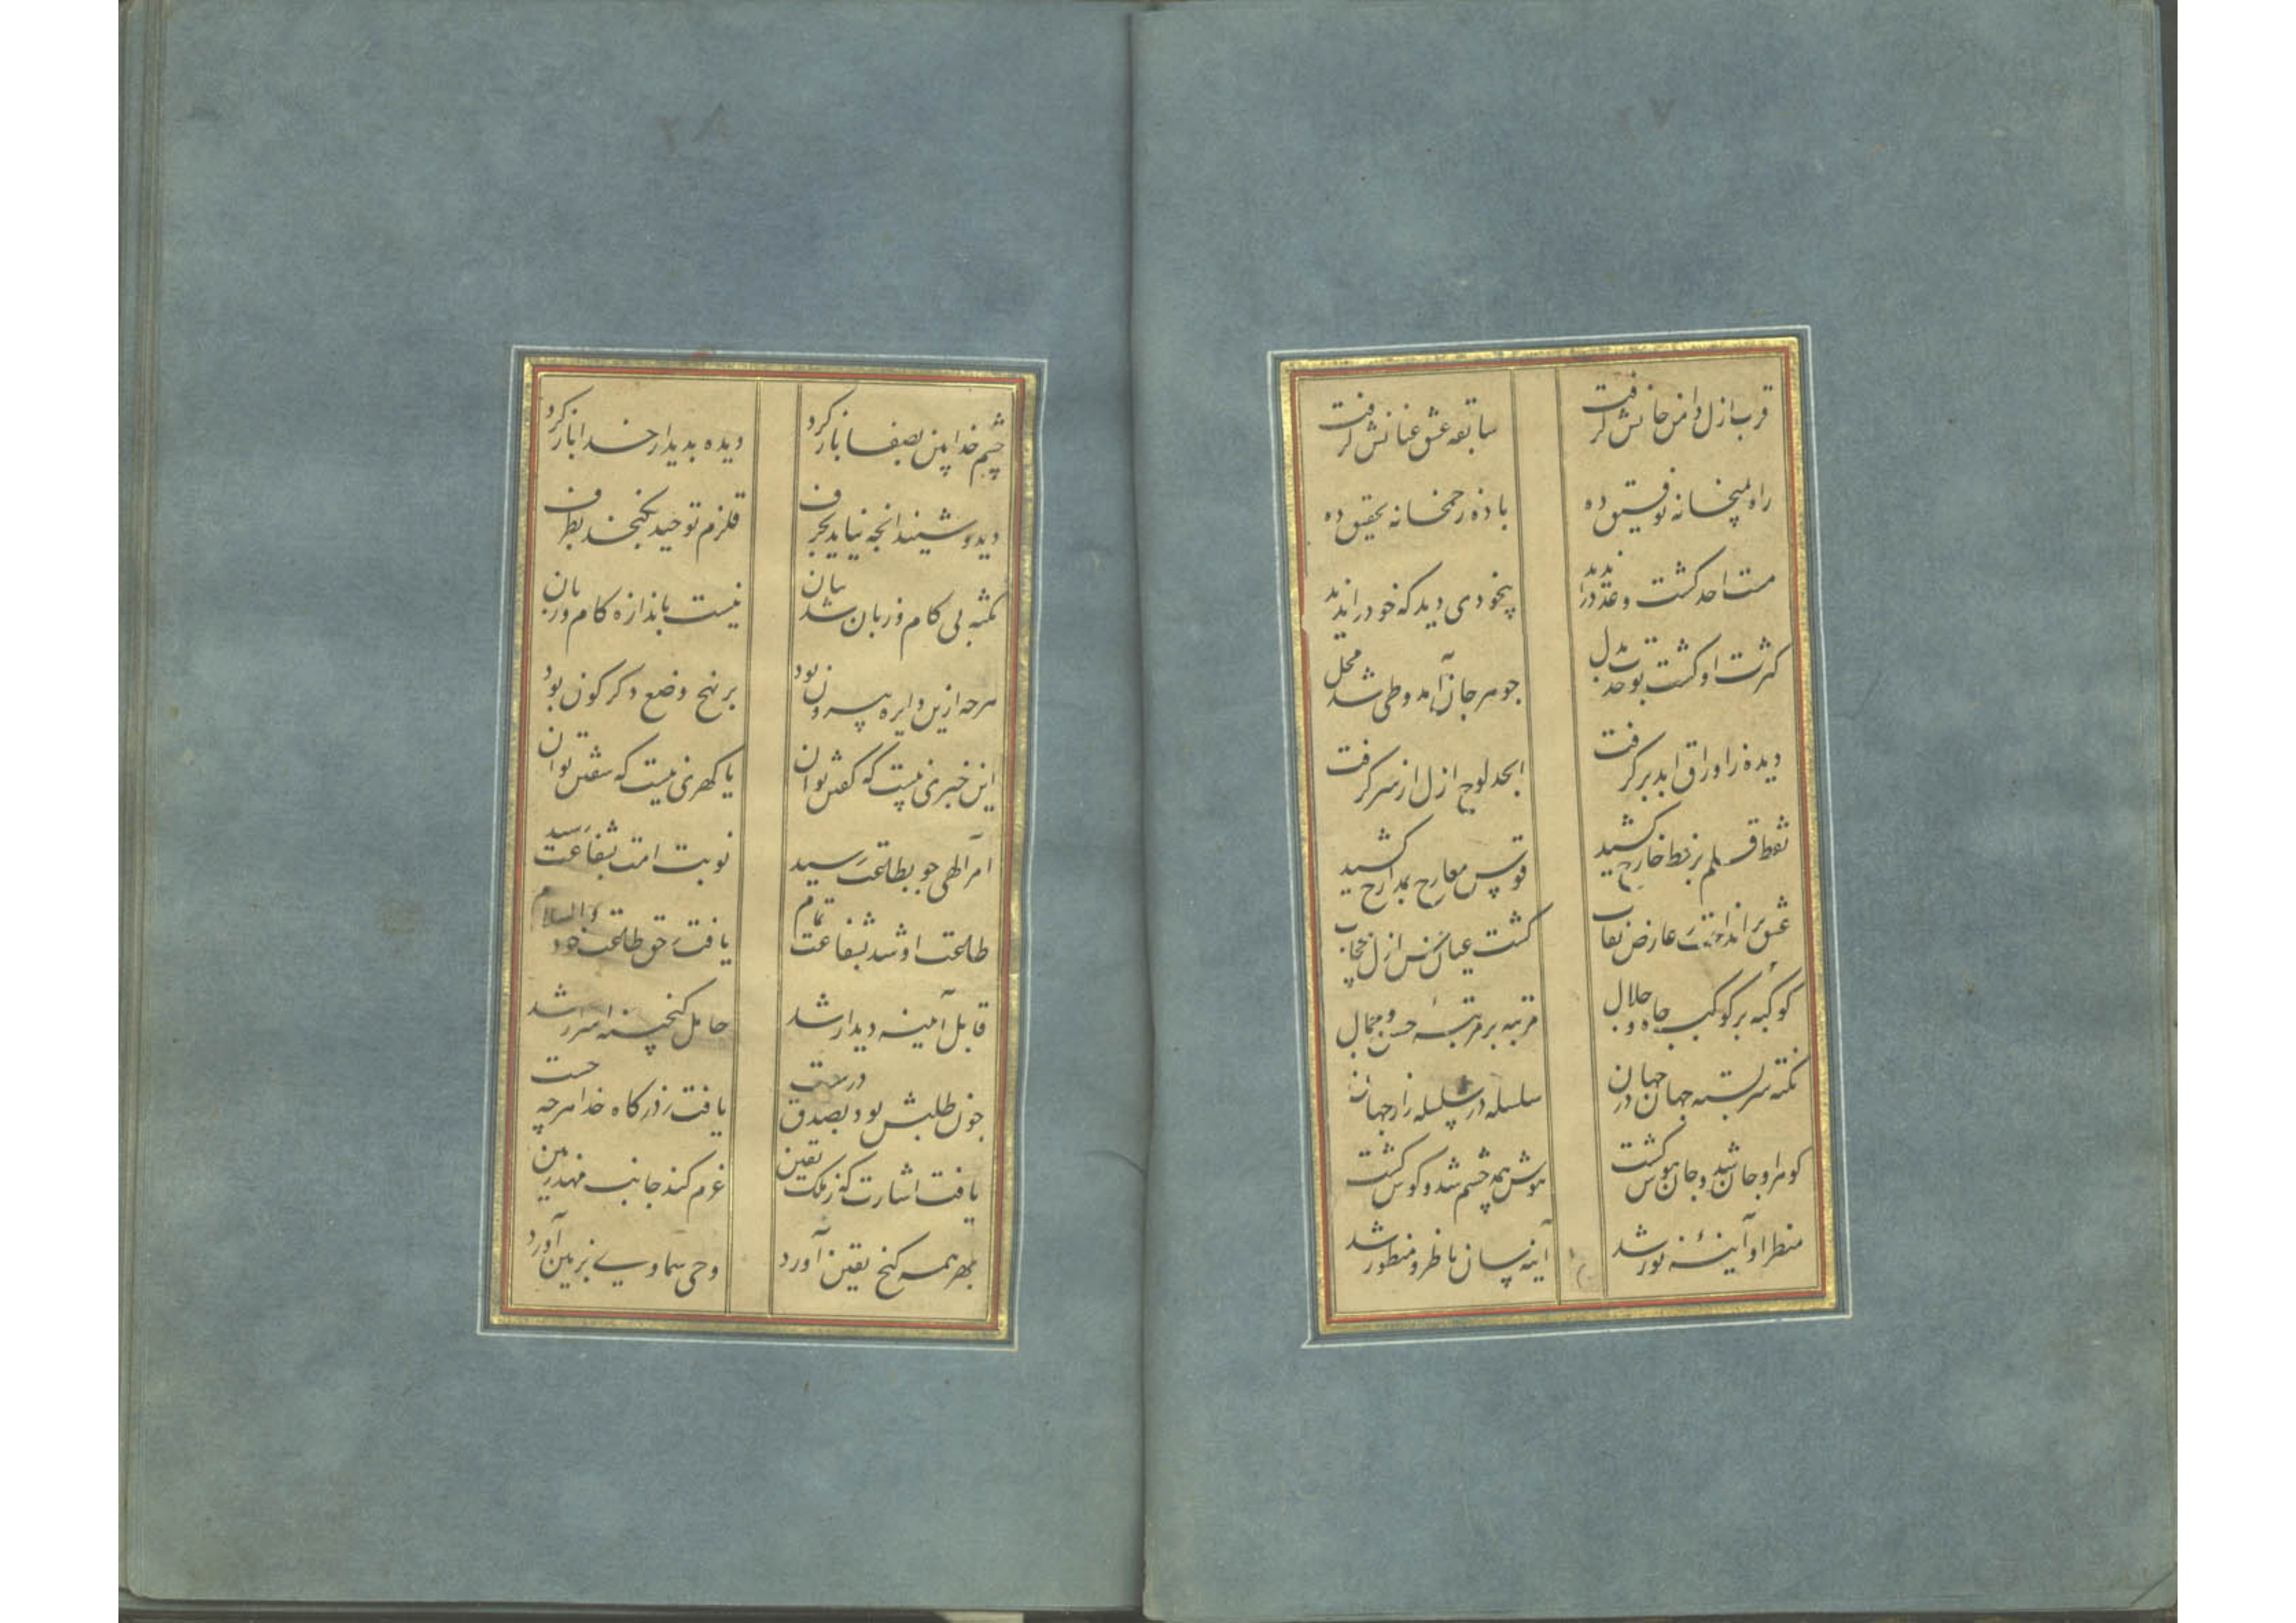 ۲۷
قرب ازل دامن جانش گرفت
سابقه عشق عنانش گرفت
راه بمیخانه توفیق ده
باده ز خمخانه تحقیق ده
مست احد گشت و عدد را ندید
بیخودی دید که خود را ندید
کثرت او گشت بوحدت بدل
جوهر جان آمد و طی شد محل
دیده ز اوراق ابد برگرفت
ابجد لوح ازل از سر گرفت
نقطه قلم بر خط خارج کشید
قوس معارج بمدارج کشید
عشق برانداخت ز عارض نقاب
گشت عیان کنس ازل بی حجاب
کوکبه بر کوکبه جاه و جلال
مرتبه بر مرتبه حسن و جمال
نکته سربسته جهان در جهان
سلسله در سلسله راز جهان
گوهر او جان شد و جان هوش گشت
هوش همه چشم شد و گوش گشت
منظر او آینه نور شد
آینه سان ناظر و منظور شد
۲۸
چشم خدا بین بصفا باز کرد
دیده بدیدار خدا باز کرد
دید و شنید آنچه نیاید بحرف
قلزم توحید نگنجد بظرف
نکته بی کام و زبان شد بیان
نیست باندازه کام و زبان
هرچه ازین دایره بیرون بود
بر نهج وضع دگرگون بود
این خبری نیست که گفتن توان
یا گهری نیست که سفتن توان
امر الهی چو بطاعت رسید
نوبت امت بشفاعت رسید
طاعت او شد بشفاعت تمام
یافت ز حق طاعت خود والسلام
قابل آمینه دیدار شد
حامل گنجینه اسرار شد
چون طلبش بود بصدق درست
یافت ز درگاه خدا هرچه جست
یافت اشارت که ز ملک یقین
عزم کند جانب مهد زمین
بهر همه گنج یقین آورد
وحی سماوی بزمین آورد